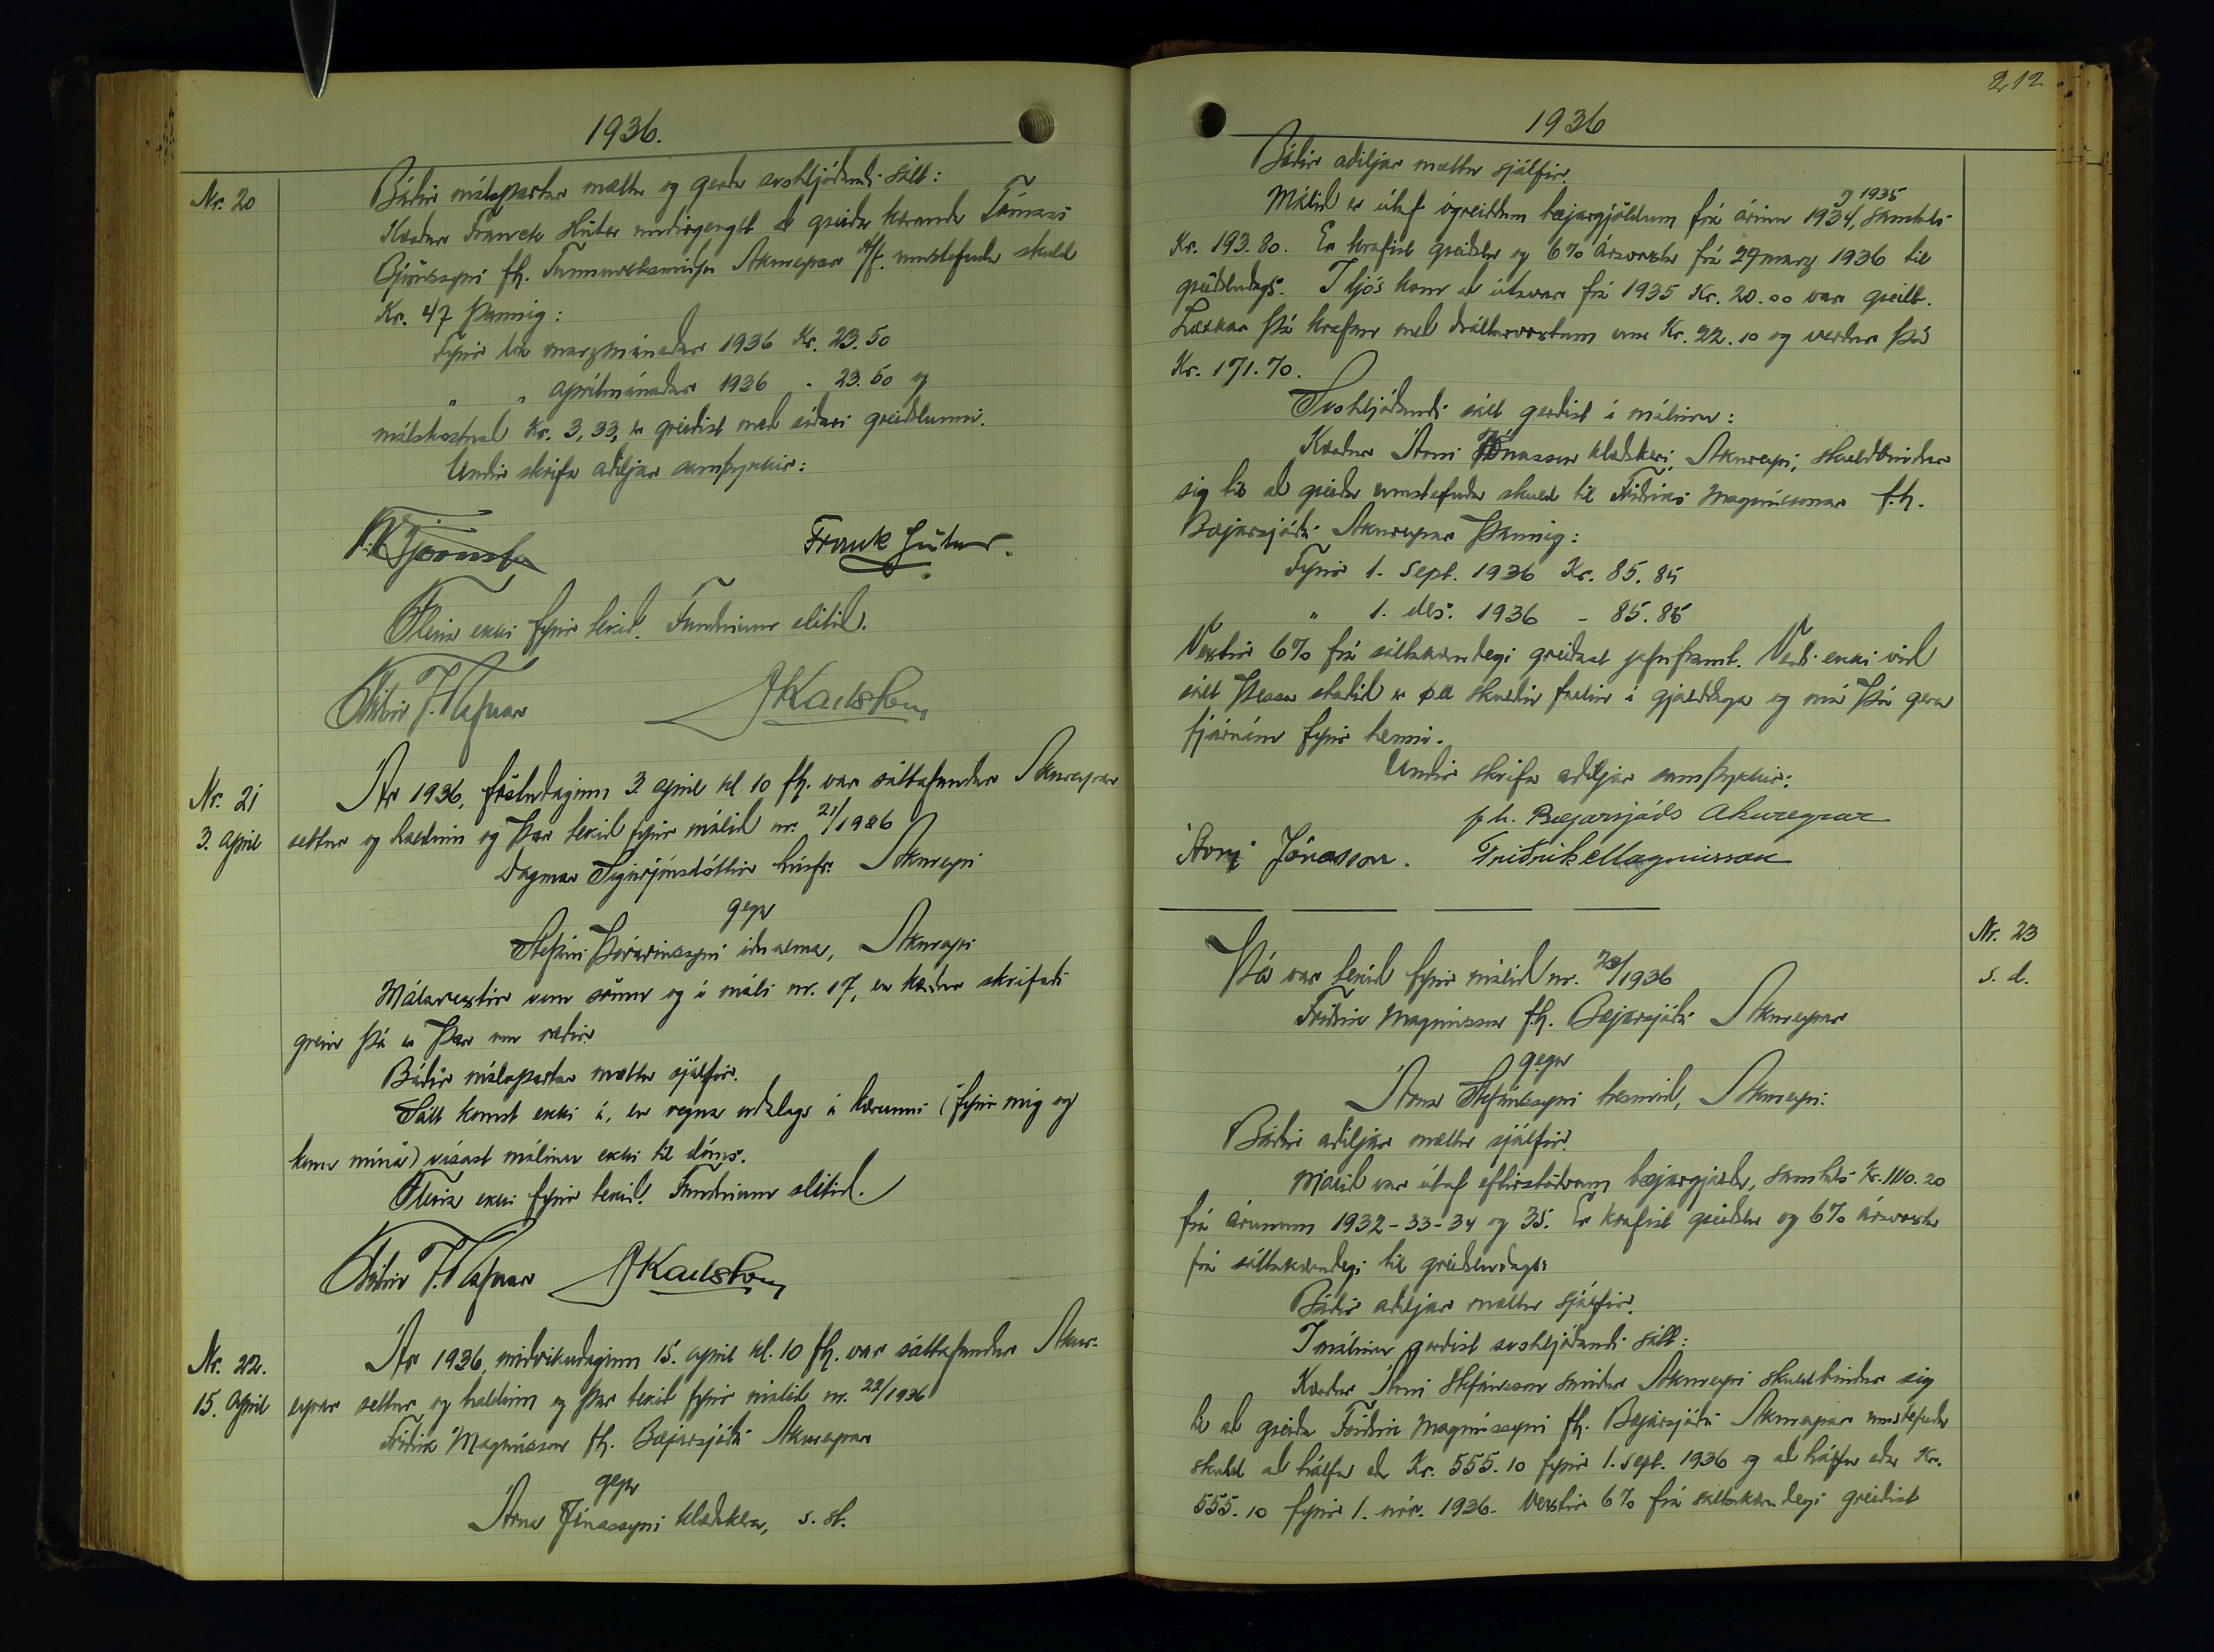 1936.
Nr. 20
Báðir málspartar mættu og gerðu svohljóðandi sátt:
Kærður Franch Hüter undirgengst að greiða kæranda Tómasi
Björnssyni fh. Tunnuverksmiðju Akureyrar H/f. umstefnda skuld
Kr. 47 þannig:
Fyrir lok marzmánaðar 1936 Kr. 23.50
" " aprílmánaðar 1936 - 23.50 og
málskostnað Kr. 3,33, er greiðist með síðari greiðslunni.
Undir skrifa aðiljar samþykkir:
T. Björnsson
Frank Hüter.
Fleira ekki fyrir tekið. Fundinum slitið.
Friðrik J. Rafnar
J Karlsson
Nr. 21
3. apríl
Ár 1936, föstudaginn 3. apríl kl. 10 fh. var sáttafundur Akureyrar
settur og haldinn og þar tekið fyrir málið nr. 21/1936
Dagmar Sigurjónsdóttir húsfr. Akureyri
gegn
Stefáni Þórarinssyni iðnnema, Akureyri
Málavextir voru sömu og í máli nr. 17, er kærður skrifaði
grein þá er þar um ræðir.
Báðir málspartar mættu sjálfir.
Sátt komst ekki á, en vegna endalags á kærunni (fyrir mig og
konu mína) vísast málinu ekki til dóms.
Fleira ekki fyrir tekið. Fundinum slitið.
Friðrik J. Rafnar J Karlsson
Nr. 22.
15. apríl
Ár 1936, miðvikudaginn 15. apríl kl. 10 fh. var sáttafundur Akur-
eyrar settur og haldinn og þar tekið fyrir málið nr. 22/1936
Friðrik Magnússon fh. Bæjarsjóðs Akureyrar
gegn
Árna Jónassyni klæðskera, s. st.
212
1936
Báðir aðiljar mættu sjálfir.
Málið er útaf ógreiddum bæjargjöldum frá árinu 1934, og 1935 samtals
Kr. 193.80. Er krafist greiðslu og 6% ársvaxta frá 29 marz 1936 til
greiðsludags. Í ljós kom að útsvar frá 1935 Kr. 20.00 var greitt.
Lækkar þá krafan með dráttarvöxtum um Kr. 22.10 og verður þá
Kr. 171.70.
Svohljóðandi sátt gerðist í málinu:
Kærður Árni Jónasson klæðskeri, Akureyri, skuldbindur
sig til að greiða umstefnda skuld til Friðriks Magnússonar f.h.
Bæjarsjóðs Akureyrar þannig:
Fyrir 1. sept. 1936 Kr. 85.85
" 1. des. 1936 - 85.85
Vextir 6% frá sáttakærudegi greiðast jafnframt. Verði ekki við
sátt þessa staðið er öll skuldin fallin í gjalddaga og má þá gera
fjárnám fyrir henni.
Undir skrifa aðiljar samþykkir:
f.h. Bæjarsjóðs Akureyrar
Árni Jónasson. Friðrik Magnússon
Nr. 23
s. d.
Þá var tekið fyrir málið nr. 23/1936
Friðrik Magnússon f.h. Bæjarsjóðs Akureyrar
gegn
Árna Stefánssyni tresmið, Akureyri.
Báðir aðiljar mættu sjálfir.
Málið var útaf eftirstöðvum bæjargjalda, samtals Kr. 1110.20
frá árunum 1932-33-34 og 35. Er krafist greiðslu og 6% ársvaxta
frá sáttakærudegi til greiðsludags.
Báðir aðiljar mættu sjálfir.
Í málinu gerðist svohljóðandi sátt:
Kærður Árni Stefánsson smiður Akureyri skuldbindur sig
til að greiða Friðrik Magnússyni fh. Bæjarsjóðs Akureyrar umstefnda
skuld að hálfu eða Kr. 555.10 fyrir 1. sept. 1936 og að hálfu eða Kr.
555.10 fyrir 1. nóv. 1936. Vextir 6% frá sáttakærudegi greiðist